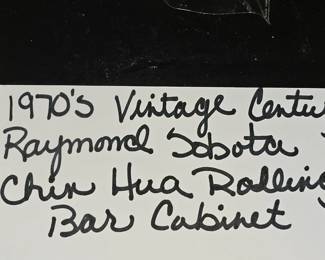 1970's Vintage Centu
Raymond Sobota
Chin Hua Rolling
Bar Cabinet